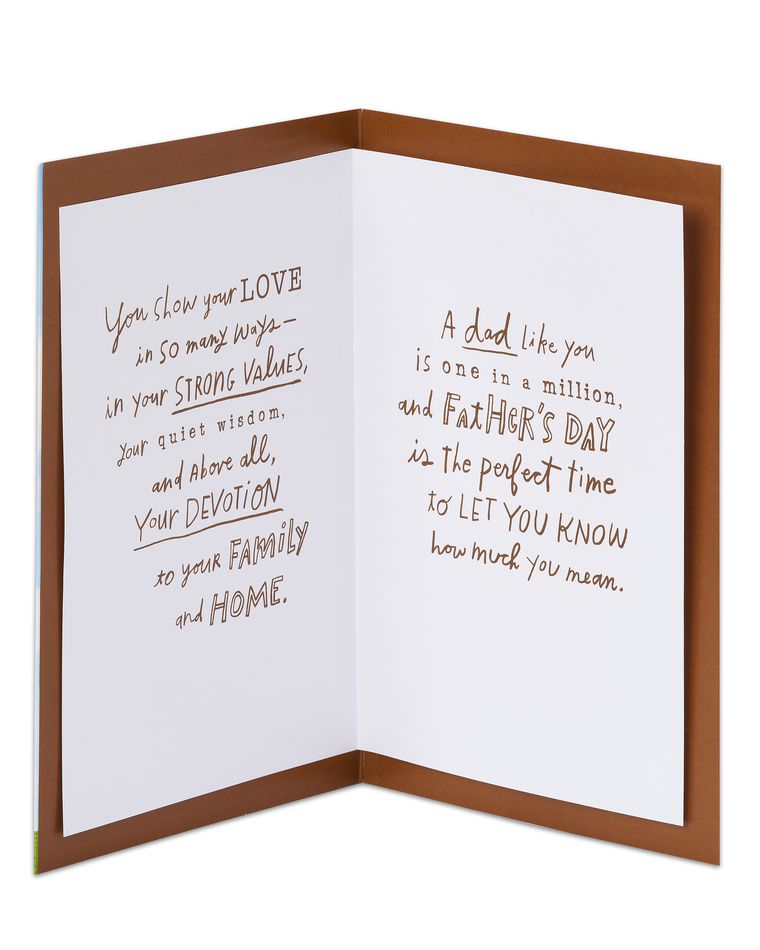 You show your LOVE
in so many ways—
in your STRONG VALUES,
your quiet wisdom,
and Above all,
Your DEVOTION
to your FAMILY
and HOME.
A dad like you
is one in a million,
and FATHER'S DAY
is the perfect time
to LET YOU KNOW
how much you mean.